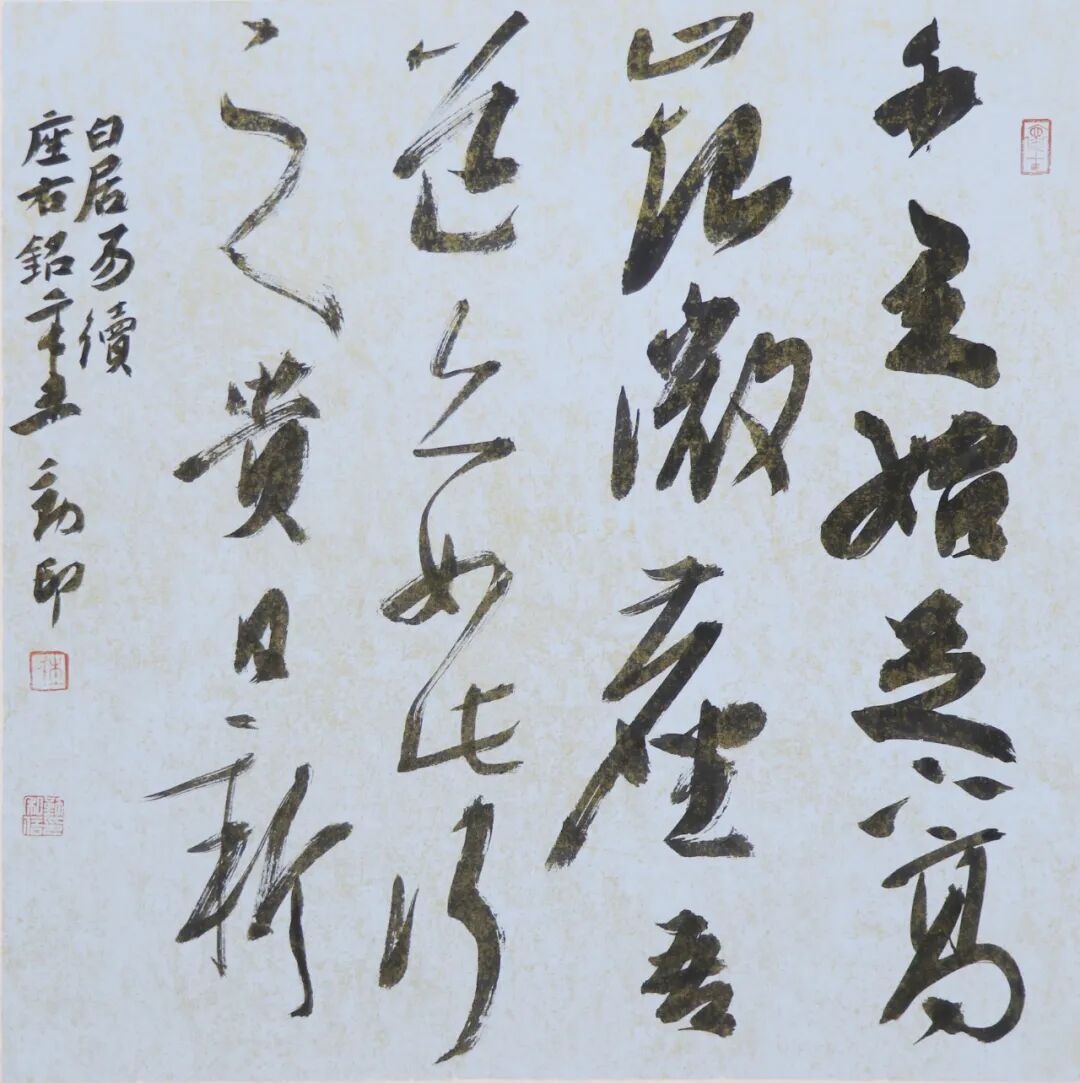 千里始足下高
山起微塵吾
道亦如此行
之貴日新
白居易續
座右銘辛丑 印